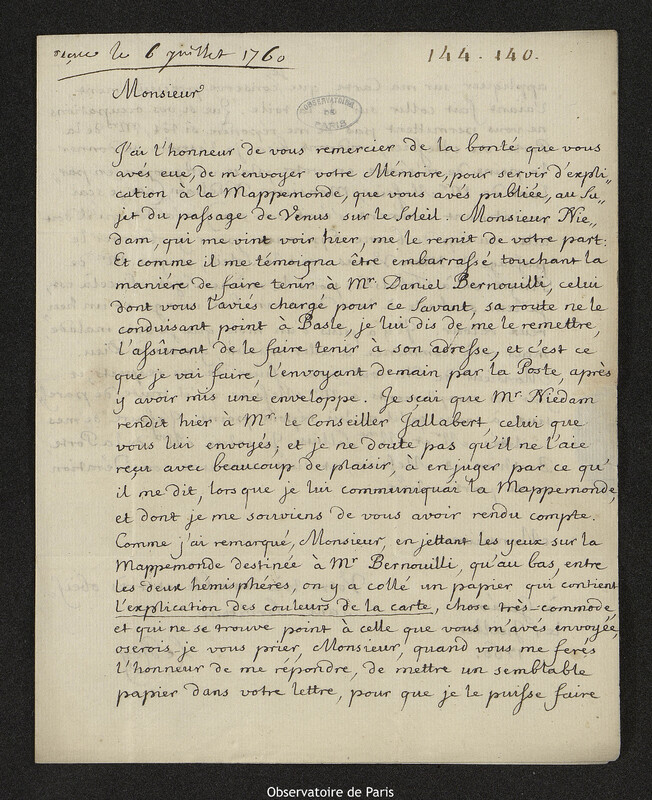 reçue le 6 juillet 1760
144. 140.
Monsieur
OBSERVATOIRE DE PARIS
J'ai l'honneur de vous remercier de la bonté que vous
avés eue, de m'envoyer votre Mémoire, pour servir d'expli"
cation à la Mappemonde, que vous avés publiée, au Su"
jet du passage de Venus sur le Soleil. Monsieur Nie"
dam, qui me vint voir hier, me le remit de votre part:
Et comme il me témoigna être embarrassé touchant la
maniére de faire tenir à Mr. Daniel Bernouilli, celui
dont vous l'aviés chargé pour ce Savant, sa route ne le
conduisant point à Basle, je lui dis de me le remettre,
l'assûrant de le faire tenir à son adresse, et c'est ce
que je vai faire, l'envoyant demain par la Poste, après
y avoir mis une enveloppe. Je sçai que Mr. Niedam
rendit hier à Mr. le Conseiller Jallabert, celui que
vous lui envoyés; et je ne doute pas qu'il ne l'aie
reçu avec beaucoup de plaisir, à en juger par ce qu'
il me dit, lorsque je lui communiquai la Mappemonde,
et dont je me souviens de vous avoir rendu compte.
Comme j'ai remarqué, Monsieur, en jettant les yeux sur la
Mappemonde destinée à Mr. Bernouilli, qu'au bas, entre
les deux hémisphéres, on y a collé un papier qui contient
l'explication des couleurs de la carte, chose très-commode
et qui ne se trouve point à celle que vous m'avés envoyée,
oserois-je vous prier, Monsieur, quand vous me ferés
l'honneur de me répondre, de mettre un semblable
papier dans votre lettre, pour que je le puisse faire
Observatoire de Paris